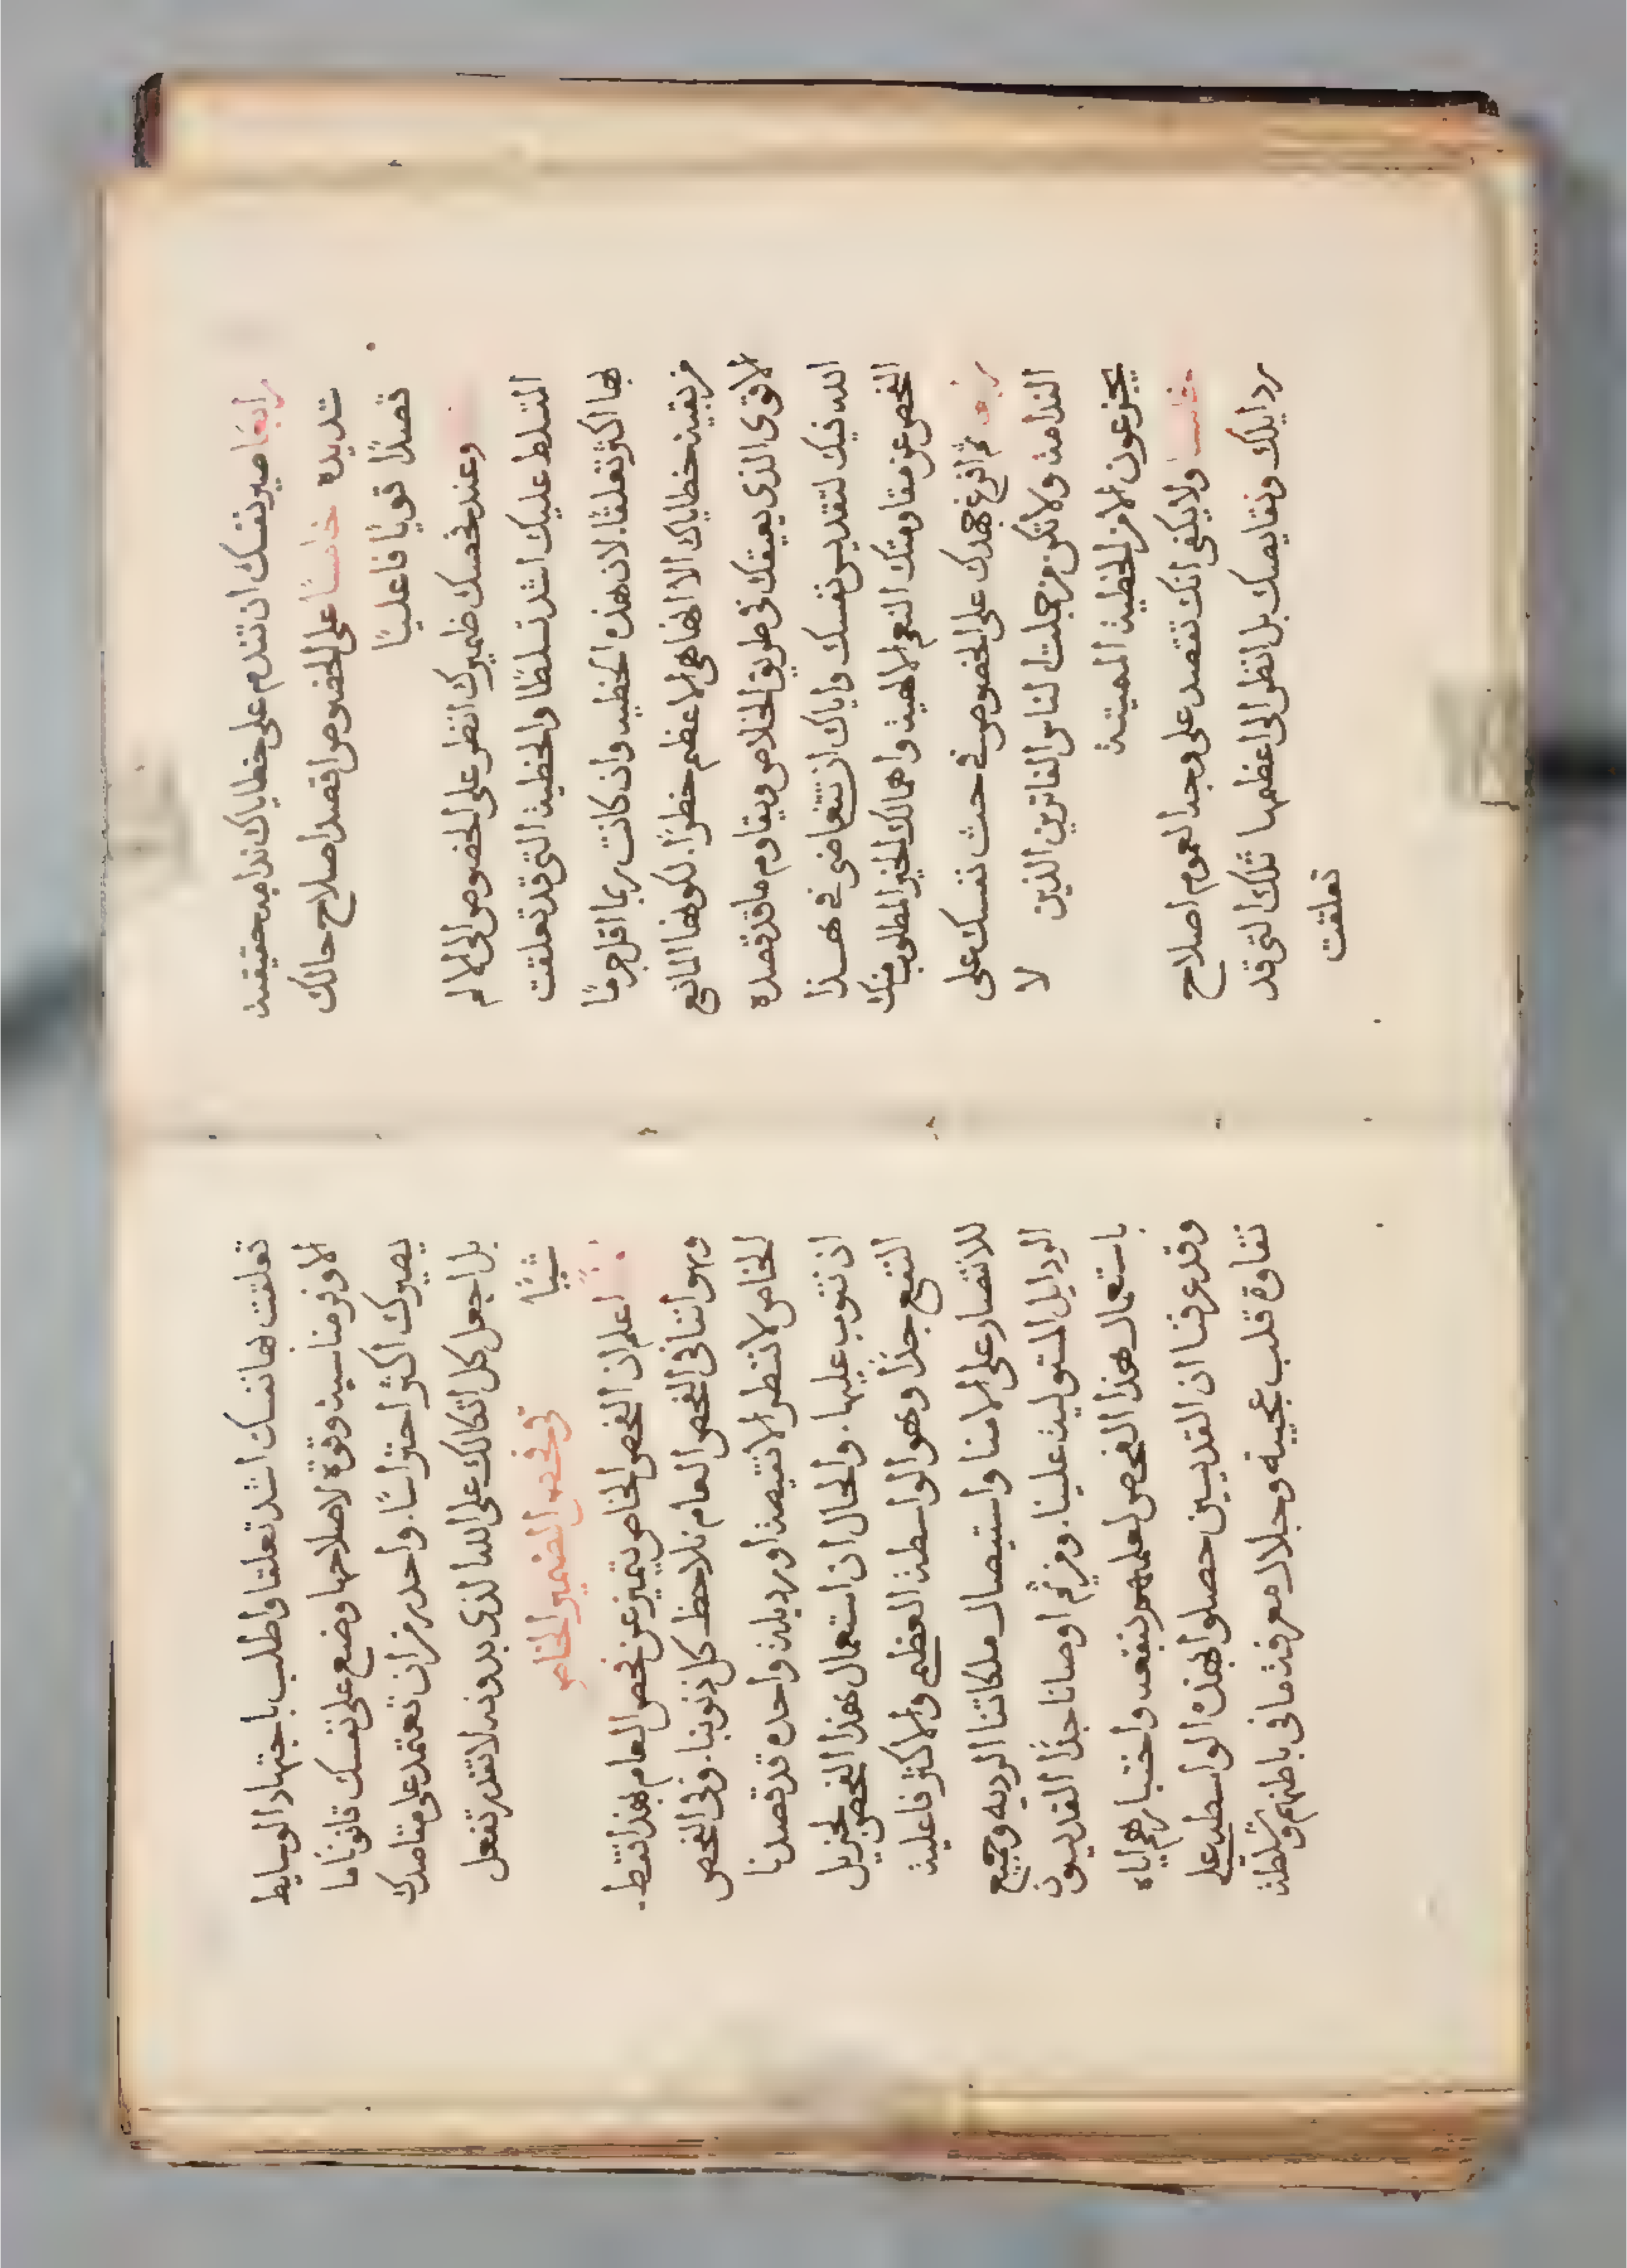 رابعًا صير نفسك ان تندم على خطاياك ندامه حقيقيه
شديده خامسًا على الخصوص اقصد اصلاح حالك
قصدًا قويًا فاعليًا
وعند فحصك ضميرك انظر على الخصوص الى الالم
المتسلط عليك اشد تسلطًا والخطية التي قد تعلقت
بها اكثر تعلقًا. لان هذه الخطيه وان كانت ربما اقل جرمًا
من بقية خطاياك الا انها هي الاعظم خطرًا. لكونها المانع
الاقوى الذي يعيقك في طريق الخلاص ويقاوم ما قد قصده
الله فيك لتقديس نفسك واياك ان تتغاضى في هذا
الفحص عن مقاومتك النعم الالهية واهمالك الخير المطلوب منك
ثم افرغ جهدك على الخصوص في حث نفسك على
الندامة ولا تكن من جملة الناس الفاترين الذين لا
يجزعون الا من الخطية المميتة
ولا يكفي انك تقصد على وجه العموم اصلاح
رذايلك ونقايصك بل انظر الى اعظمها تلك التي قد
تعلقت
تعلقت بها نفسك اشد تعلقا واطلب باجتهاد الوسايط
الاوفر مناسبة وقوة لاصلاحها وضع على نفسك قانونًا ما
يصيرك اكثر احتراسًا. واحذر من ان تعتمد على مقاصدك
بل اجعل كل اتكالك على الله الذي بدونه لا تقدر تفعل
شيًا
في فحص الضمير الخاص
اعلم ان الفحص الخاص يتميز عن فحص العام بهذا فقط.
وهو اننا في الفحص العام نلاحظ كل ذنوبنا. وفي الفحص
الخاص لا ننظر الا نقيصة او رذيلة واحده قد قصدنا
ان نتوب عليها. والحال ان استعمال هذا الفحص لجزيل
النفع جدًا وهو الواسطة العظمى والاكثر فاعلية
للانتصار على الامنا واستيصال ملكاتنا الرديه وجميع
الرذايل المتولية علينا. ومن ثم اوصانا جدًا القديسون
باستعمال هذا الفحص لعلمهم بنفعه واختبارهم اياه
وقد عرفنا ان القديسين حصلوا بهذه الواسطه على
نقاوة قلب عجيبه وجلال معرفة ما في باطنهم وسلطة